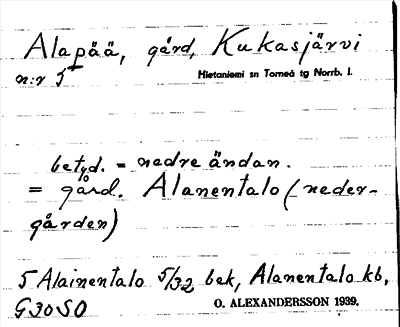 Alapää, gård, Kukasjärvi
n:r 5 Hietaniemi sn Torneå tg Norrb. l.
betyd. = nedre ändan.
= gård. Alanentalo (neder-
gården)
5 Alainentalo 5/32 bek, Alanentalo kb,
G30S0 O. ALEXANDERSSON 1939.